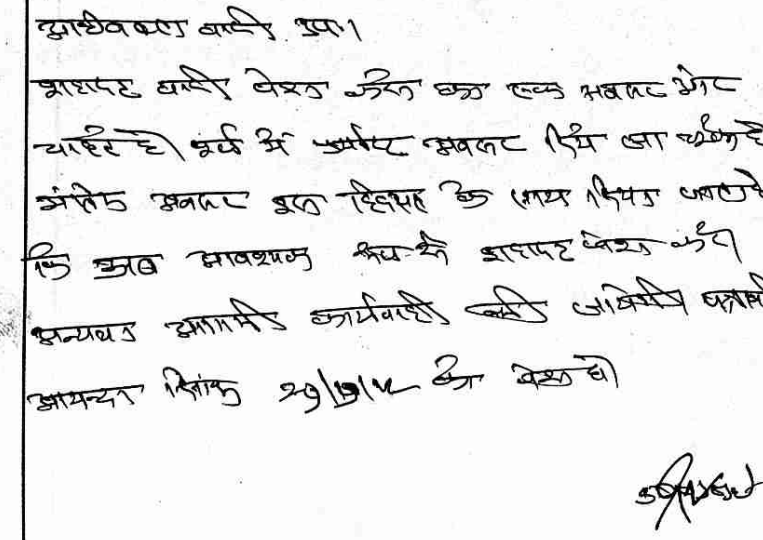 अधिवक्ता वादी उप.।
शहादत वादी पेश करने का एक अवसर और
चाहते है। पूर्व में पर्याप्त अवसर दिये जा चुके है
अंतिम अवसर इस हिदायत के साथ दिया जाता है
कि अब आवश्यक रूप से शहादत पेश करें।
अन्यथा आगामी कार्यवाही की जावेगी पत्रावली
आयन्दा दिनांक को पेश हो।